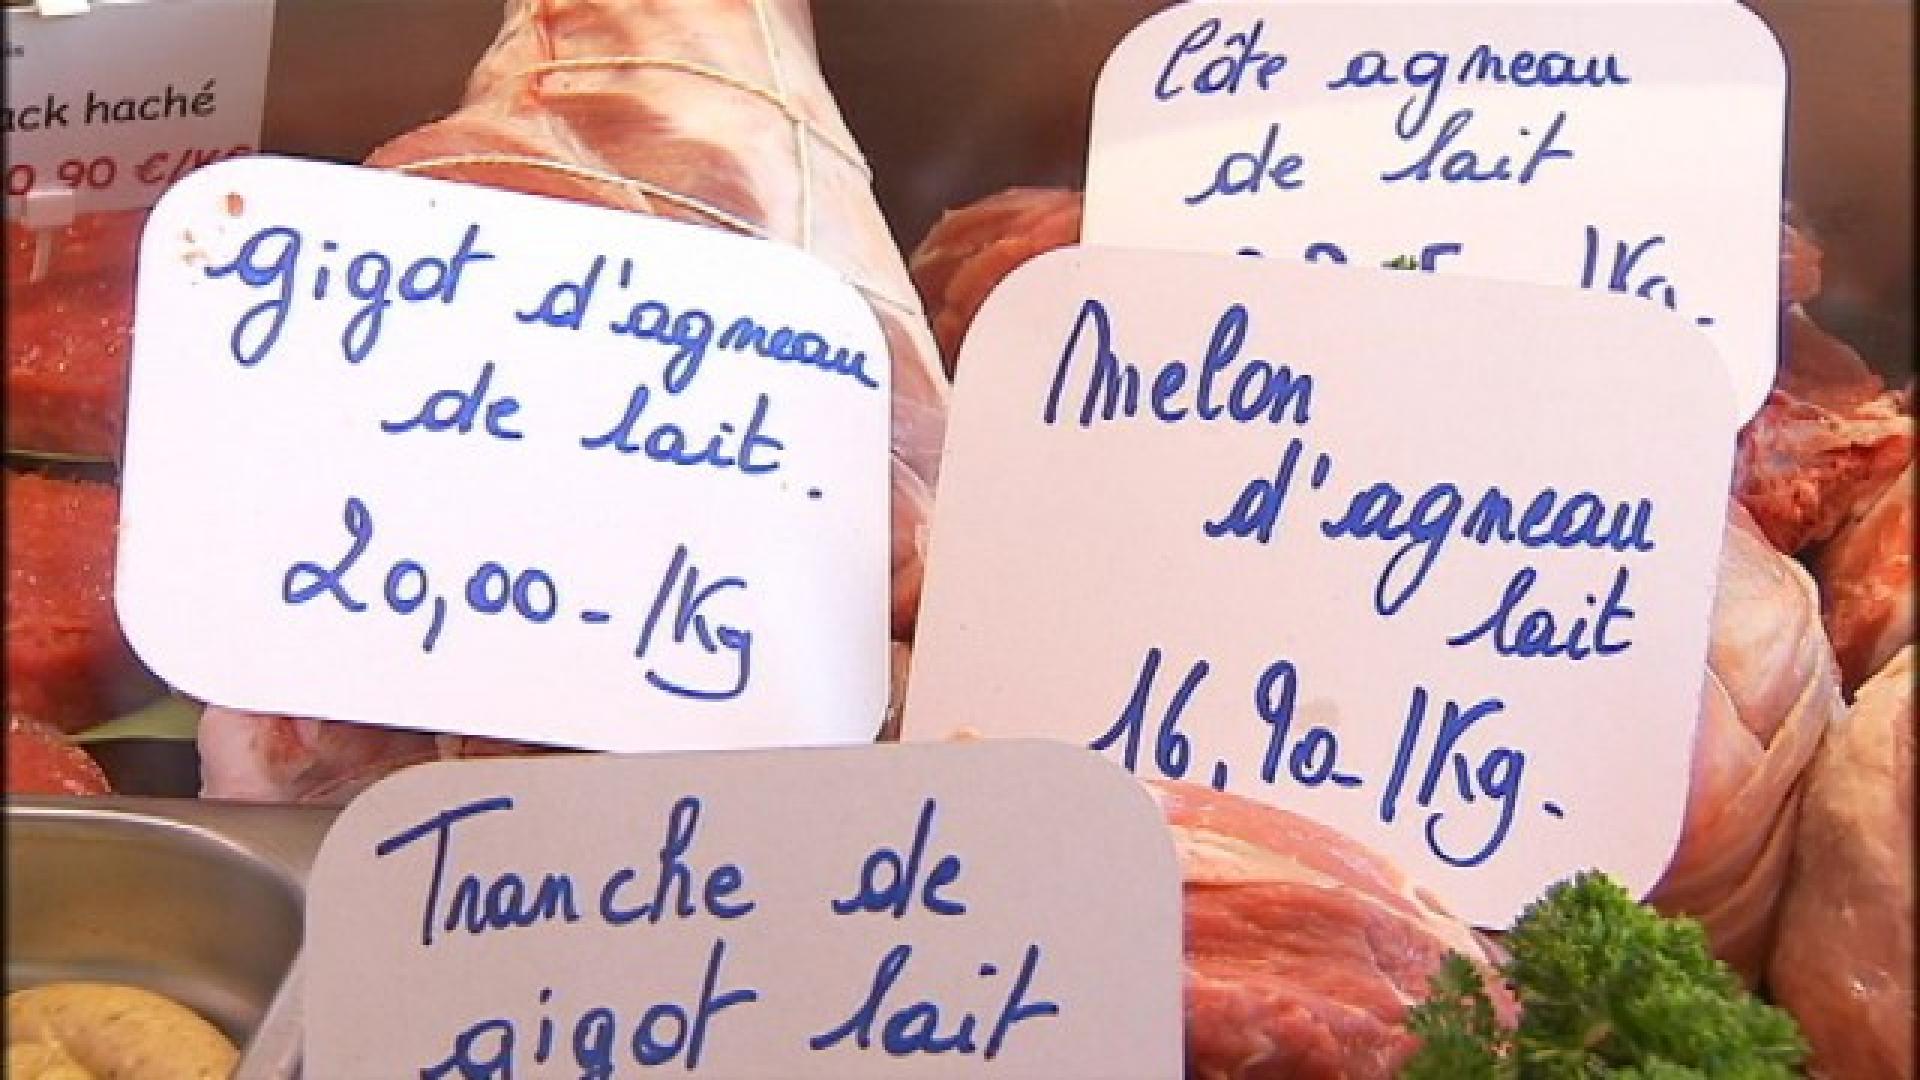 haché
90 €/KG
Côte agneau
de lait
/Kg.
Gigot d'agneau
de lait.
20,00-/Kg
Melon
d'agneau
lait
16,90-/Kg.
Tranche de
gigot lait